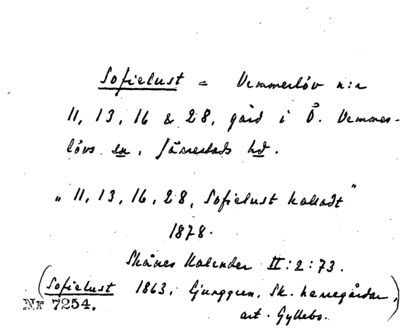 Sofielust = Vemmerlöv n:r
11, 13, 16 & 28, gård i Ö. Vemmer-
lövs sn, Järrestads hd.
„ 11, 13, 16, 28, Sofielust kalladt "
1878.
Skånes Kalender II:2:73.
(Sofielust 1863, Ljunggren, Sk. herregårdar,
Nr 7254. art. Gyllebo.)